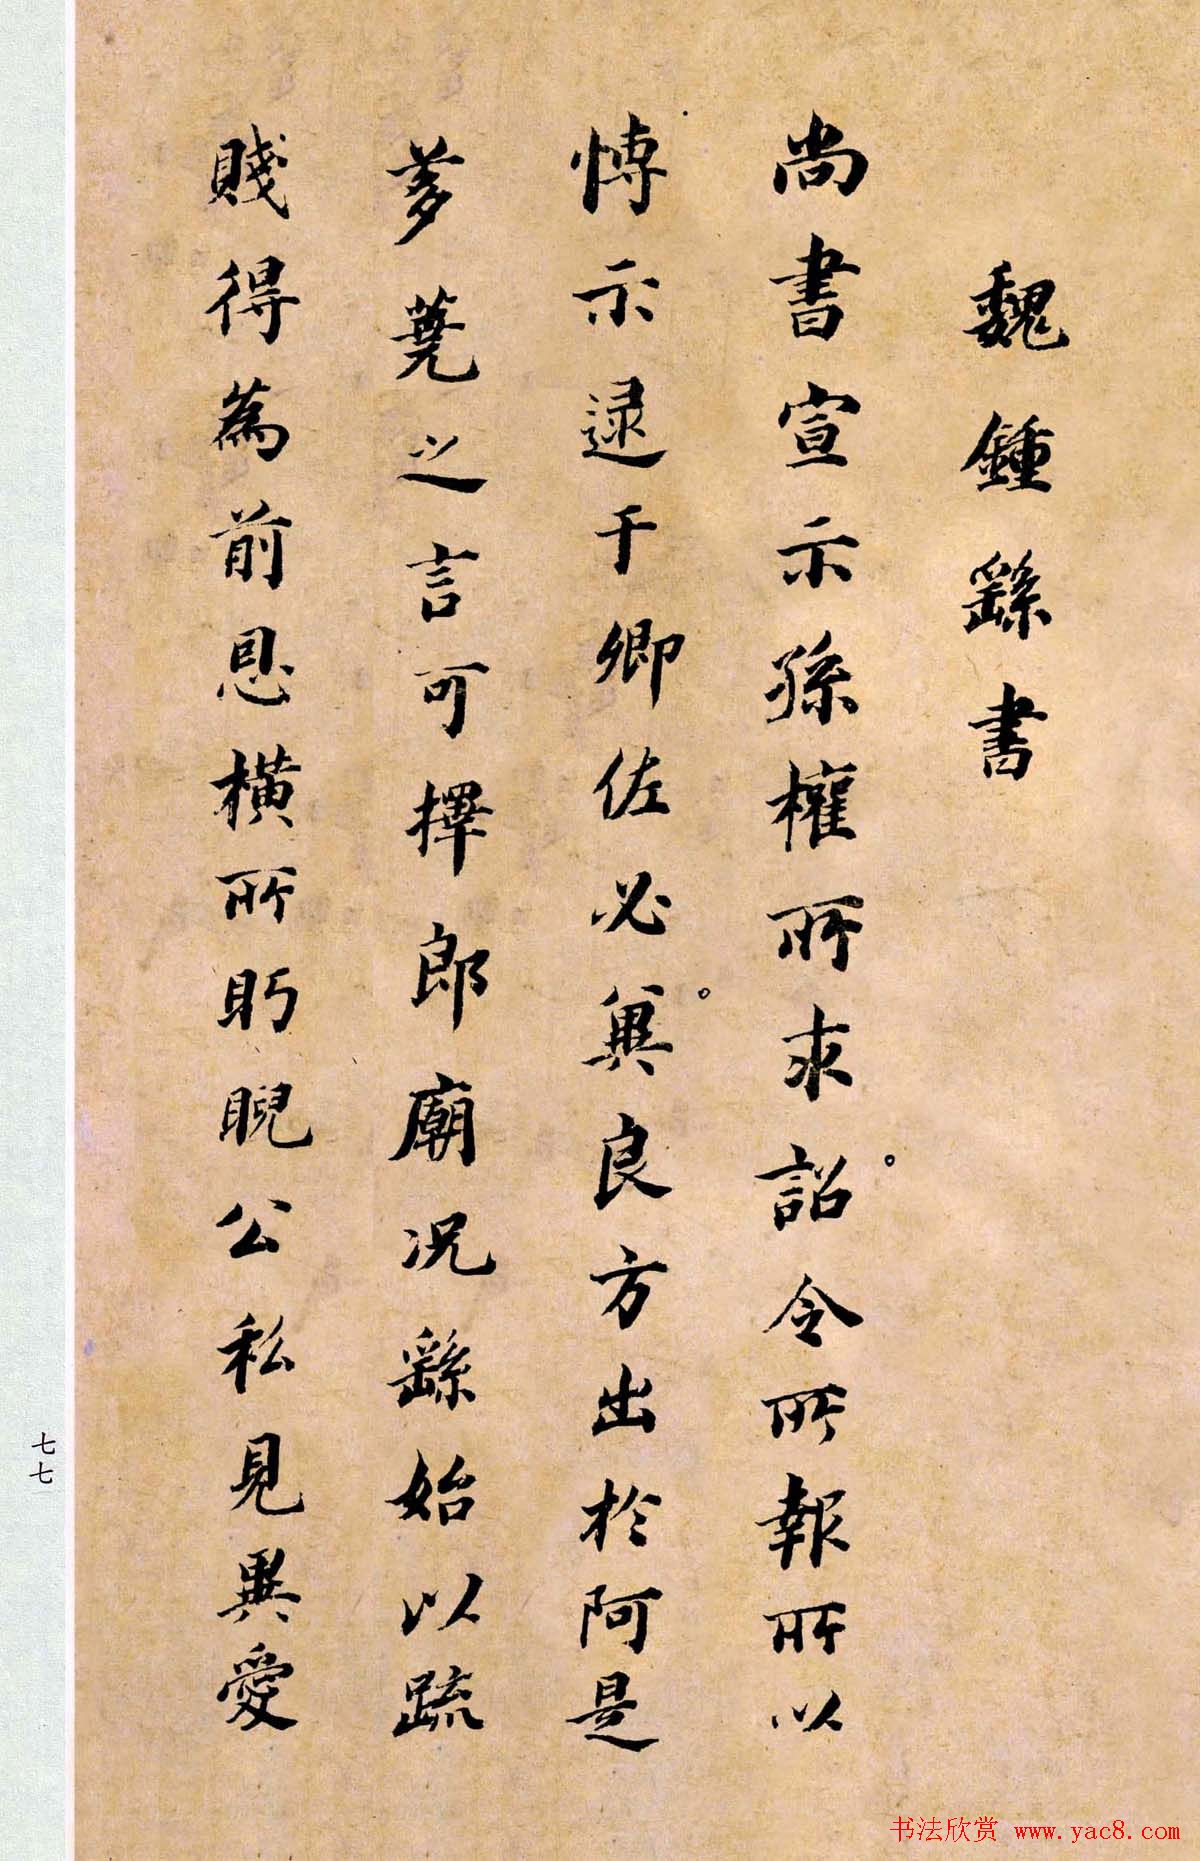 魏鍾繇書
尚書宣示孫權所求詔令所報所以
博示逮于卿佐必冀良方出於阿是
芻蕘之言可擇郎廟况繇始以疏
賤得為前恩橫所眄睨公私見異愛
七七
书法欣赏 www.yac8.com